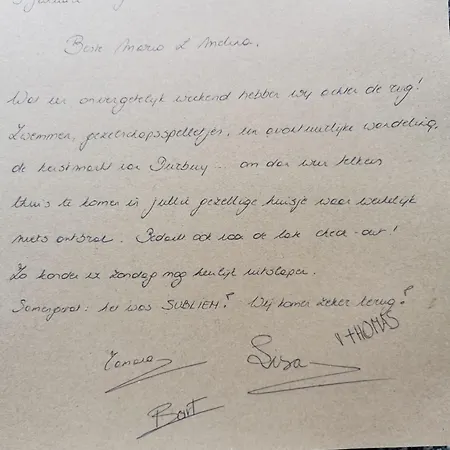 Beste Mario & Andina,
Wat een onvergetelijk weekend hebben wij achter de rug!
Zwemmen, gezelschapsspelletjes, een avontuurlijke wandeling,
de kerstmarkt van Durbuy... om dan weer telkens
thuis te komen in jullie gezellige huisje waar werkelijk
niets ontbrak. Bedankt ook voor de late check-out!
Zo konden we zondag nog heerlijk uitslapen.
Samengevat: het was SUBLIEM! Wij komen zeker terug!
Tamara
Lisa
THOMAS
Bart